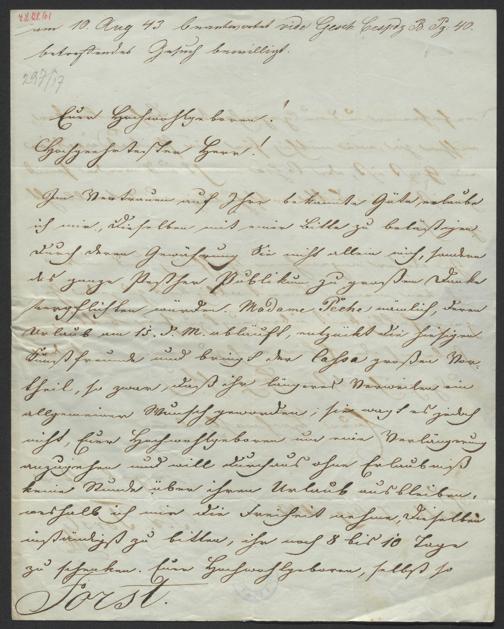 am 10 Aug 43 beantwortet vide Gesch Corresp B. Pg. 40.
betreffendes Gesuch bewilligt.
297/17
Euer Hochwohlgeboren!
Hochgeehrtester Herr!
Im Vertrauen auf Ihre bekannte Güte erlaube
ich mir, Dieselben mit einer Bitte zu belästigen
durch deren Gewährung Sie nicht allein mich, sondern
das ganze Pesther Publikum zu großem Danke
verpflichten würden. Madame Peche, nämlich, deren
Urlaub am 15. d. M. abläuft, entzückt die hiesigen
Kunstfreunde und bringt der Cassa großen Vor-
theil, so zwar, daß ihr längeres Verweilen ein
allgemeiner Wunsch geworden; sie wagt es jedoch
nicht, Euer Hochwohlgeboren um eine Verlängerung
anzugehen und will durchaus ohne Erlaubniß
keine Stunde über ihren Urlaub ausbleiben,
weshalb ich mir die Freiheit nehme, Dieselben
inständigst zu bitten, ihr noch 8 bis 10 Tage
zu schenken. Euer Hochwohlgeboren, selbst so
Forst.